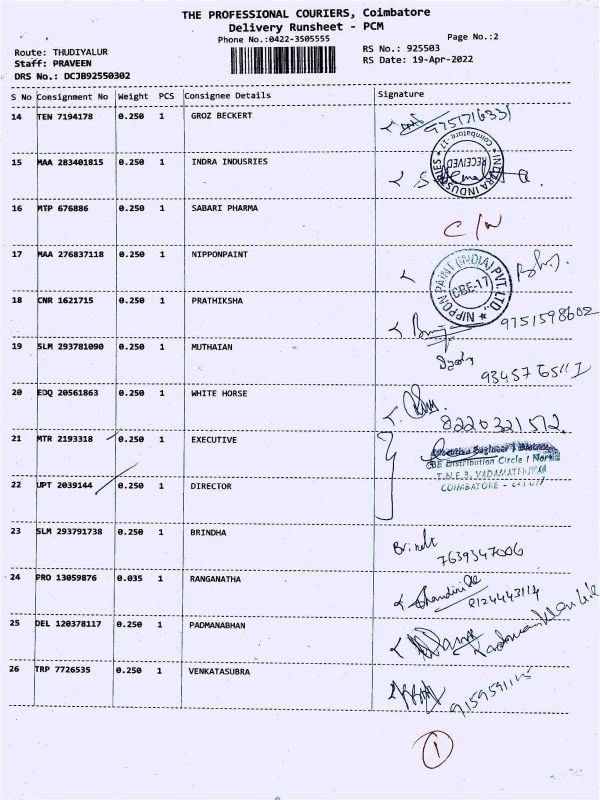 THE PROFESSIONAL COURIERS, Coimbatore
Delivery Runsheet - PCM
Phone No.:0422-3505555
Page No.:2
Route: THUDIYALUR
RS No.: 925503
Staff: PRAVEEN
RS Date: 19-Apr-2022
DRS No.: DCJB92550302
S No Consignment No Weight PCS Consignee Details Signature
14 TEN 7194178 0.250 1 GROZ BECKERT
INDRA INDUSTRIES * Coimbatore - 17 * RECEIVED
15 MAA 283401815 0.250 1 INDRA INDUSRIES
16 MTP 676886 0.250 1 SABARI PHARMA
C/N
17 MAA 276837118 0.250 1 NIPPONPAINT
NIPPON PAINT (INDIA) PVT. LTD. * CBE-17
18 CNR 1621715 0.250 1 PRATHIKSHA
9751598602
19 SLM 293781090 0.250 1 MUTHAIAN
20 EDQ 20561863 0.250 1 WHITE HORSE
8220321512
21 MTR 2193318 0.250 1 EXECUTIVE
CBE Distribution Circle / North
T.N.E.B.
COIMBATORE
22 UPT 2039144 0.250 1 DIRECTOR
23 SLM 293791738 0.250 1 BRINDHA
7639347006
24 PRO 13059876 0.035 1 RANGANATHA
8124443114
25 DEL 120378117 0.250 1 PADMANABHAN
26 TRP 7726535 0.250 1 VENKATASUBRA
1